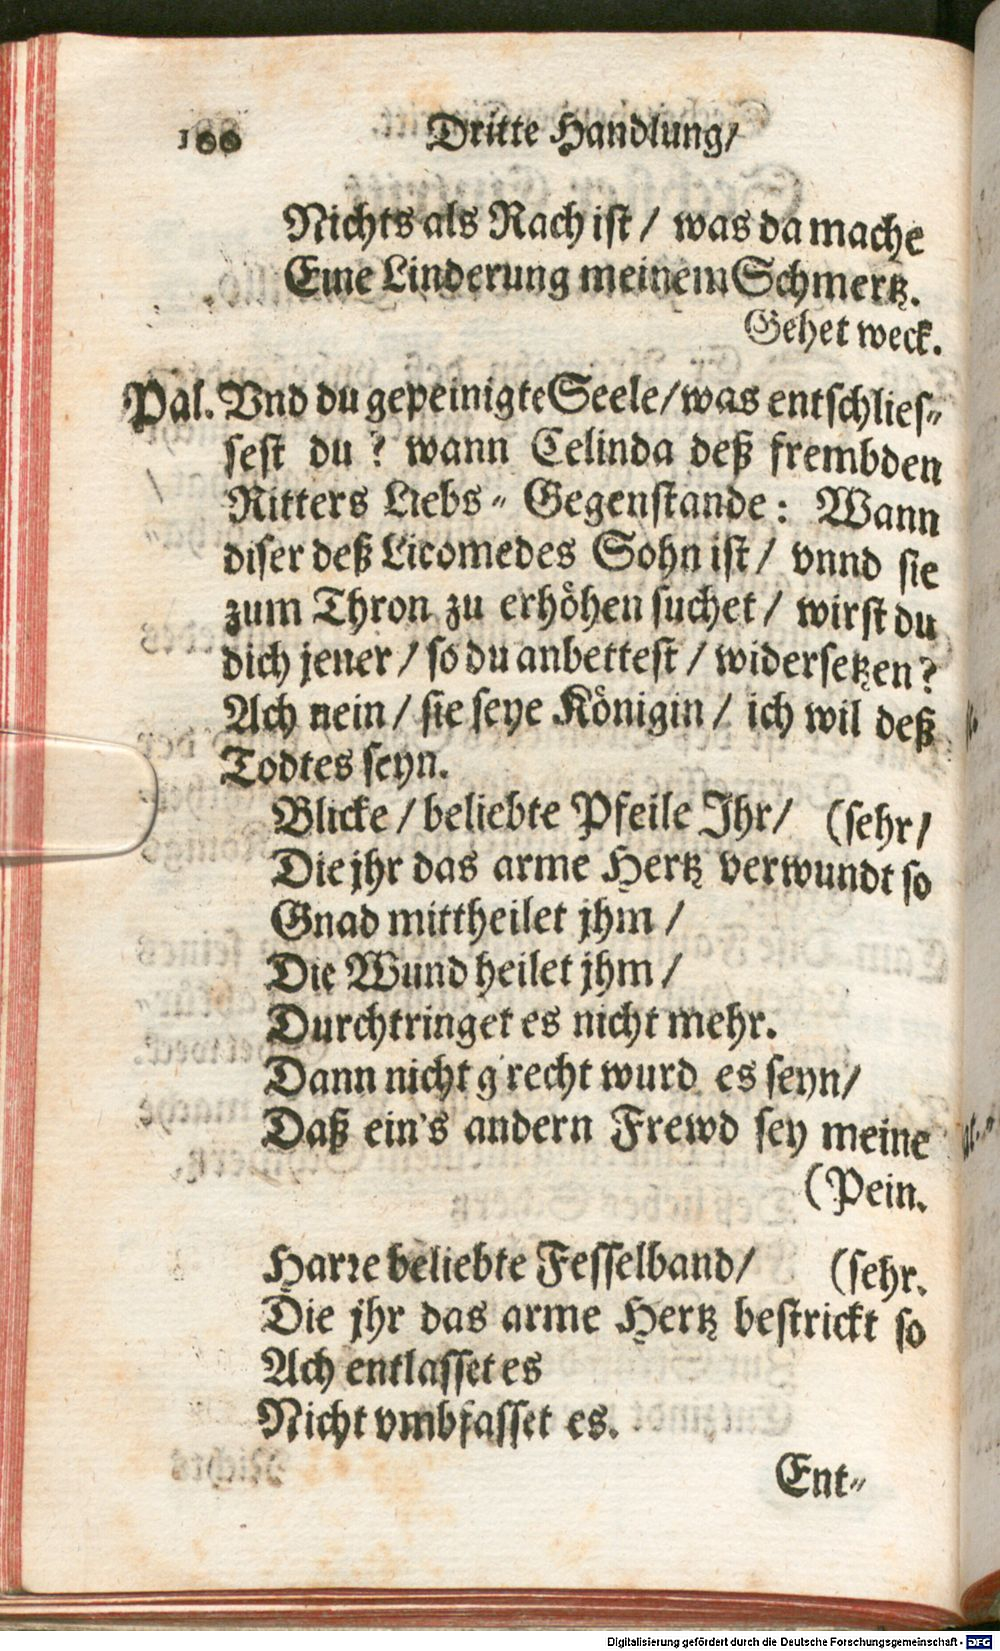 100 Dritte Handlung/
Nichts als Rach ist / was da mache
Eine Linderung meinem Schmertz.
Gehet weck.
Pal. Vnd du gepeinigte Seele/ was entschlies-
sest du ? wann Celinda deß frembden
Ritters Liebs- Gegenstande: Wann
diser deß Licomedes Sohn ist/ vnnd sie
zum Thron zu erhöhen suchet/ wirst du
dich jener / so du anbettest / widersetzen?
Ach nein / sie seye Königin / ich wil deß
Todtes seyn.
Blicke / beliebte Pfeile Ihr/ (sehr/
Die jhr das arme Hertz verwundt so
Gnad mittheilet jhm /
Die Wund heilet jhm /
Durchtringet es nicht mehr.
Dann nicht g'recht wurd es seyn/
Daß ein's andern Frewd sey meine
(Pein.
Harte beliebte Fesselband/ (sehr.
Die jhr das arme Hertz bestrickt so
Ach entlasset es
Nicht vmbfasset es.
Ent-
Digitalisierung gefördert durch die Deutsche Forschungsgemeinschaft - DFG